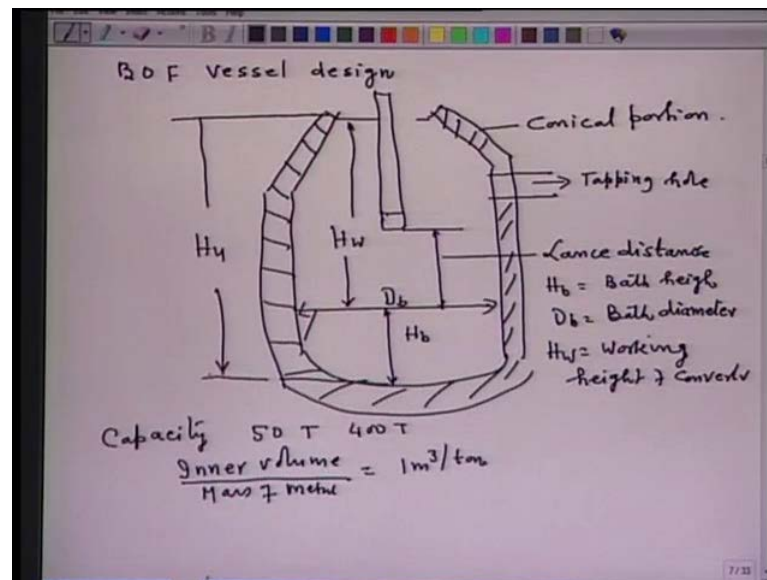 BOF vessel design
Conical portion.
Tapping hole
Hu
Hw
Lance distance
Hb = Bath heigh
Db
Db = Bath diameter
Hb
Hw = Working
height of convertr
Capacity 50 T 400 T
Inner volume
Mass of metal
= 1m³/ton
7/33